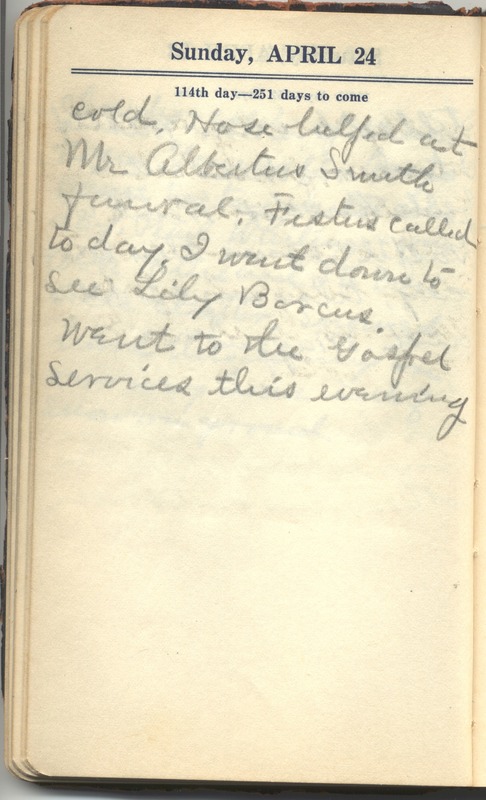 Sunday, APRIL 24
114th day—251 days to come
cold. Hose helped at
Mr Albertus Smith
funural. Festus called
to day. I went down to
see Lily Barcus.
Went to the Gospel
Services this evening